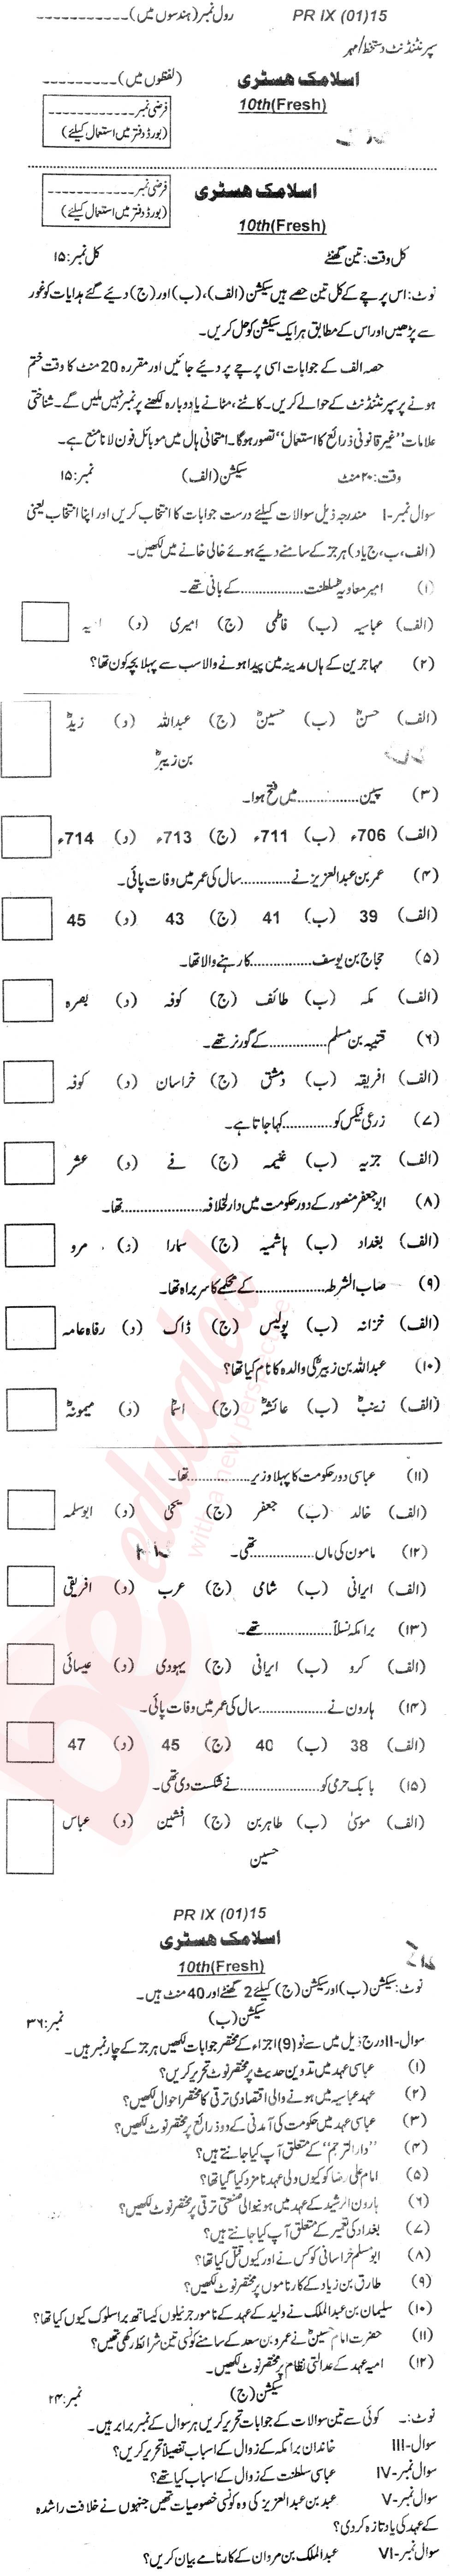 رول نمبر(ہندسوں میں)............ PR IX (01)15
سپرنٹنڈنٹ دستخط/مہر
اسلامک ہسٹری (لفظوں میں)..........
10th(Fresh)
فرضی نمبر............
(بورڈ دفتر میں استعمال کیلئے)
اسلامک ہسٹری
10th(Fresh)
فرضی نمبر............
(بورڈ دفتر میں استعمال کیلئے)
کل وقت: تین گھنٹے کل نمبر: ۱۵
نوٹ: اس پرچے کے کل تین حصے ہیں سیکشن (الف)، (ب) اور (ج) دیئے گئے ہدایات کو غور
سے پڑھیں اور اس کے مطابق ہر ایک سیکشن کو حل کریں۔
حصہ الف کے جوابات اسی پرچے پر دیئے جائیں اور مقررہ 20 منٹ کا وقت ختم
ہونے پر سپرنٹنڈنٹ کے حوالے کریں۔ کاٹنے، مٹانے یا دوبارہ لکھنے پر نمبر نہیں ملیں گے۔ شناختی
علامات "غیر قانونی ذرائع کا استعمال" تصور ہوگا۔ امتحانی ہال میں موبائل فون لانا منع ہے۔
وقت: ۲۰ منٹ سیکشن (الف) نمبر: ۱۵
سوال نمبر-I مندرجہ ذیل سوالات کیلئے درست جوابات کا انتخاب کریں اور اپنا انتخاب یعنی
(الف، ب، ج یا د) ہر جز کے سامنے دیئے ہوئے خالی خانے میں لکھیں۔
(۱) امیر معاویہؓ سلطنت................کے بانی تھے۔
(الف) عباسیہ (ب) فاطمی (ج) امیری (د)
(۲) مہاجرین کے ہاں مدینہ میں پیدا ہونے والا سب سے پہلا بچہ کون تھا؟
(الف) حسنؓ (ب) حسینؓ (ج) عبداللہ (د) زیدؓ
بن زبیرؓ
(۳) سپین................میں فتح ہوا۔
(الف) 706ء (ب) 711ء (ج) 713ء (د) 714ء
(۴) عمر بن عبدالعزیز نے............سال کی عمر میں وفات پائی۔
(الف) 39 (ب) 41 (ج) 43 (د) 45
(۵) حجاج بن یوسف................کا رہنے والا تھا۔
(الف) مکہ (ب) طائف (ج) کوفہ (د) بصرہ
(۶) قتیبہ بن مسلم...............کے گورنر تھے۔
(الف) افریقہ (ب) دمشق (ج) خراسان (د) کوفہ
(۷) زرعی ٹیکس کو.............کہا جاتا ہے۔
(الف) جزیہ (ب) غنیمہ (ج) فے (د) عشر
(۸) ابو جعفر منصور کے دور حکومت میں دارالخلافہ................تھا۔
(الف) بغداد (ب) ہاشمیہ (ج) سمارا (د) مرو
(۹) صاب الشرطہ................کے محکمے کا سربراہ تھا۔
(الف) خزانہ (ب) پولیس (ج) ڈاک (د) رفاہ عامہ
(۱۰) عبداللہ بن زبیرؓ کی والدہ کا نام کیا تھا؟
(الف) زینبؓ (ب) عائشہؓ (ج) اسماؓ (د) میمونہؓ
(۱۱) عباسی دور حکومت کا پہلا وزیر................تھا۔
(الف) خالد (ب) جعفر (ج) یحیٰی (د) ابو سلمہ
(۱۲) مامون کی ماں................تھی۔
(الف) ایرانی (ب) شامی (ج) عرب (د) افریقی
(۱۳) برامکہ نسلاً................تھے۔
(الف) کرو (ب) ایرانی (ج) یہودی (د) عیسائی
(۱۴) ہارون نے................سال کی عمر میں وفات پائی۔
(الف) 38 (ب) 40 (ج) 45 (د) 47
(۱۵) بابک خرمی کو................نے شکست دی تھی۔
(الف) موسیٰ (ب) طاہر بن (ج) افشین (د) عباس
حسین
PR IX (01)15
اسلامک ہسٹری
10th(Fresh)
نوٹ: سیکشن (ب) اور سیکشن (ج) کیلئے 2 گھنٹے اور 40 منٹ ہیں۔
سیکشن (ب) نمبر: ۳۶
سوال-II درج ذیل میں سے نو (9) اجزاء کے مختصر جوابات لکھیں ہر جز کے چار نمبر ہیں۔
(۱) عباسی عہد میں تدوین حدیث پر مختصر نوٹ تحریر کریں؟
(۲) عہد عباسیہ میں ہونے والی اقتصادی ترقی کا مختصر احوال لکھیں؟
(۳) عباسی عہد میں حکومت کی آمدنی کے دو ذرائع پر مختصر نوٹ لکھیں؟
(۴) "دارالترجم" کے متعلق آپ کیا جانتے ہیں؟
(۵) امام علی رضا کو کیوں ولی عہد نامزد کیا گیا تھا؟
(۶) ہارون الرشید کے عہد میں ہونیوالی صنعتی ترقی پر مختصر نوٹ لکھیں؟
(۷) بغداد کی تعمیر کے متعلق آپ کیا جانتے ہیں؟
(۸) ابو مسلم خراسانی کو کس نے اور کیوں قتل کیا تھا؟
(۹) طارق بن زیاد کے کارناموں پر مختصر نوٹ لکھیں؟
(۱۰) سلیمان بن عبدالملک نے ولید کے عہد کے نامور جرنیلوں کیساتھ برا سلوک کیوں کیا تھا؟
(۱۱) حضرت امام حسینؓ نے عمرو بن سعد کے سامنے کونسی تین شرائط رکھی تھیں؟
(۱۲) امیہ عہد کے عدالتی نظام پر مختصر نوٹ لکھیں۔
سیکشن (ج) نمبر: ۲۴
نوٹ:۔ کوئی سے تین سوالات کے جوابات تحریر کریں ہر سوال کے نمبر برابر ہیں۔
سوال-III خاندان برامکہ کے زوال کے اسباب تفصیلاً تحریر کریں؟
سوال نمبر-IV عباسی سلطنت کے زوال کے اسباب کیا تھے؟
سوال نمبر-V عبد بن عبدالعزیز کی وہ کونسی خصوصیات تھیں جنہوں نے خلافت راشدہ
کے عہد کی یاد تازہ کر دی؟
سوال نمبر-VI عبدالملک بن مروان کے کارنامے بیان کریں؟
be educated
with a new perspective